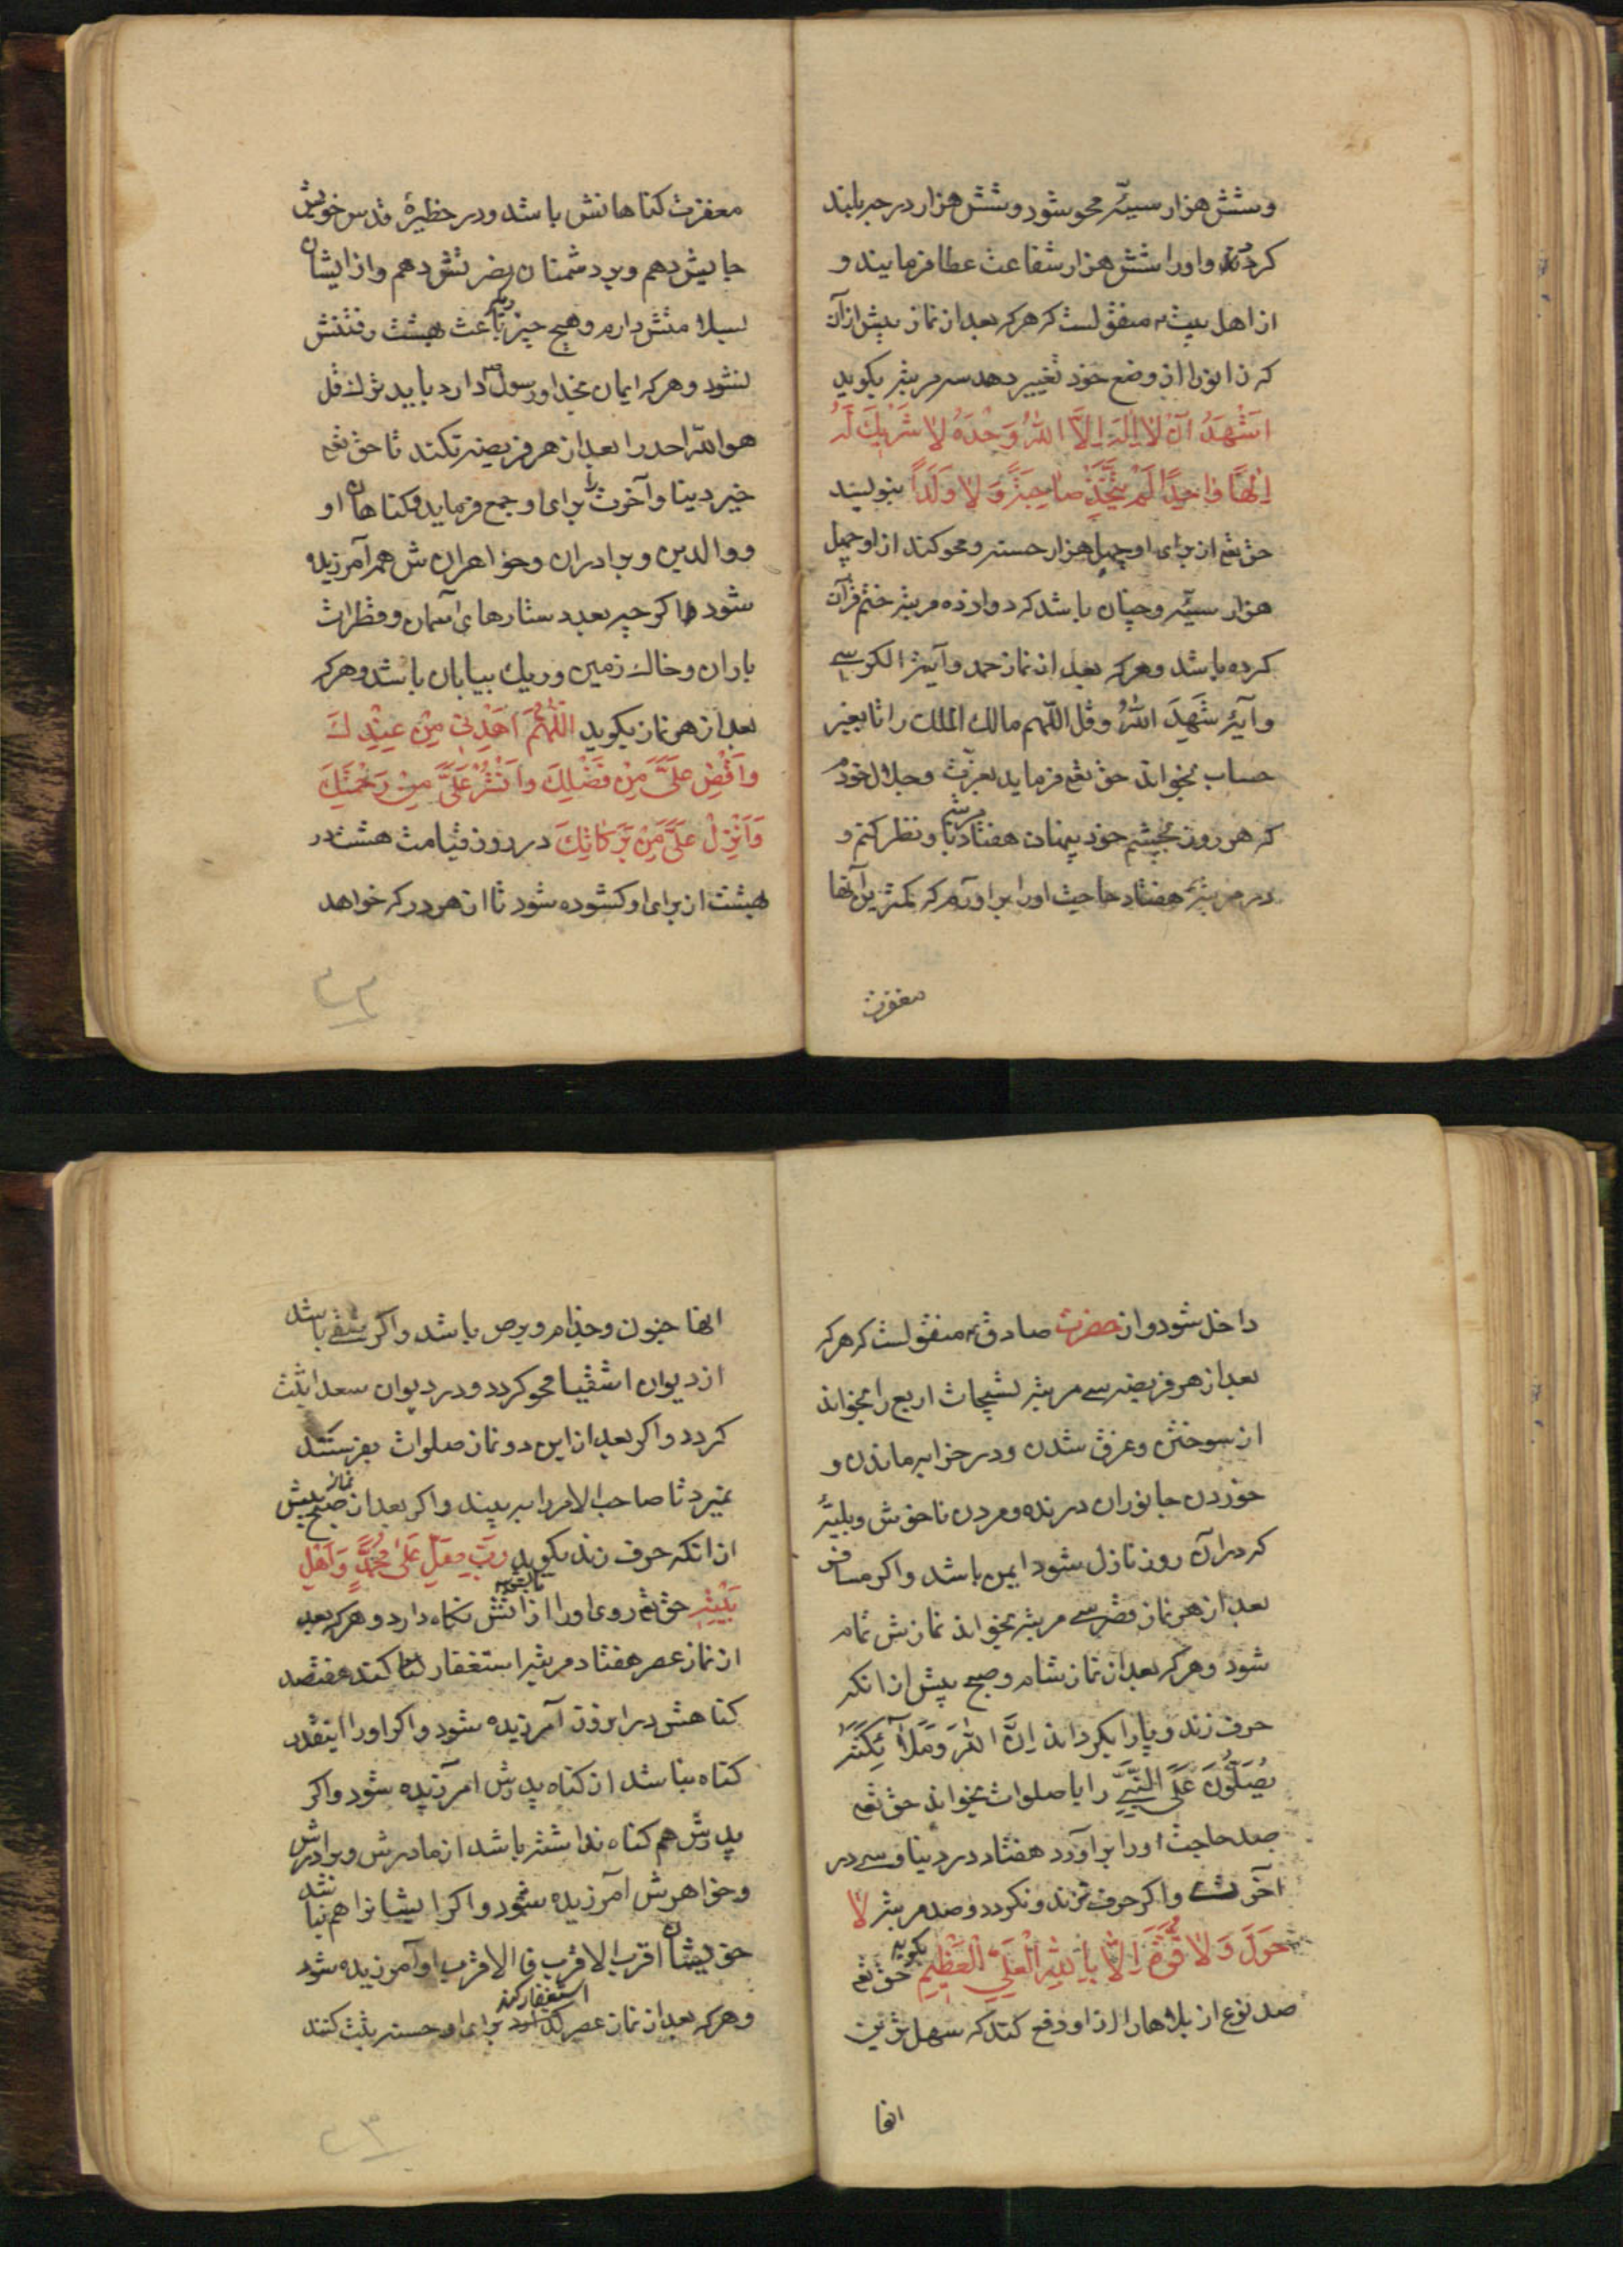 وشش هزار سیئه محو شود و شش هزار درجه بلند
کردد و اورا شش هزار شفاعت عطا فرمایند و
از اهل بیت ع منقولست که هرکه بعد از نماز پیش از آن
که زانو را از وضع خود تغییر دهد سه مرتبه بکوید
اَشْهَدُ اَنْ لا اِلهَ اِلاَّ اللهُ وَحْدَهُ لا شَرِیكَ لَهُ
اِلٰهًا واحِدًا لَمْ یَتَّخِذْ صاحِبَةً وَلا وَلَدًا بنویسند
حق تعم از برای او چهل هزار حسنه و محو کند از او چهل
هزار سیئه و چنان باشد که دوازده مرتبه ختم قرآن
کرده باشد و هرکه بعد از نماز حمد و آیة الکرسی
و آیهٔ شَهِدَ اللهُ و قل اللّهم مالك الملك را تا بغیر
حساب بخواند حق تعم فرماید بعزت و جلال خودم
که هر روز بچشم خود پنهان هفتاد مرتبه باو نظر کنم و
در هر مرتبه هفتاد حاجت اورا براورم که کمترین آنها
مغفرت
مغفرت کناهانش باشد و در حظیرهٔ قدس خویش
جایش دهم و بر دشمنان نصرتش دهم و از ایشان
بسلامتش دارم و هیچ چیز مانع بهشت رفتنش
نشود و هرکه ایمان بخدا و رسول دارد باید ترك قل
هو الله احد را بعد از هر فریضه نکند تا حق تعم
خیر دینا و آخرت را برای او جمع فرماید و کناهان او
و والدین و برادران و خواهرانش همه آمرزیده
شود اکر چه بعدد ستارهای آسمان و قطرات
باران و خاك زمین و ریك بیابان باشد و هرکه
بعد از هر نماز بکوید اَللّهُمَّ اهْدِنی مِنْ عِنْدِكَ
وَاَفِضْ عَلَیَّ مِنْ فَضْلِكَ وَانْشُرْ عَلَیَّ مِنْ رَحْمَتِكَ
وَاَنْزِلْ عَلَیَّ مِنْ بَرَکاتِكَ در روز قیامت هشت در
بهشت از برای او کشوده شود تا از هر در که خواهد
داخل شود و از حضرت صادق ع منقولست که هرکه
بعد از هر فریضه سی مرتبه تسبیحات اربع را بخواند
از سوختن و غرق شدن و در خرابه ماندن و
خوردن جانوران درنده و مردن ناخوش و بلیهٔ
که در آن روز نازل شود ایمن باشد و اکر مسافر
بعد از هر نماز قصر سی مرتبه بخواند نمازش تمام
شود و هرکه بعد از نماز شام و صبح پیش از انکه
حرف زند و پارا بکرداند اِنَّ اللهَ وَمَلائِكَتَهُ
یُصَلُّونَ عَلَی النَّبِیِّ را با صلوات بخواند حق تعم
صد حاجت اورا براورد هفتاد در دینا و سی در
آخرت و اکر حرف نزند و نکردد و صد مرتبه لا
حَوْلَ وَلا قُوَّةَ اِلاّ بِاللهِ الْعَلِیِّ الْعَظِیمِ بکوید حق تعم
صد نوع از بلاها را از او دفع کند که سهل ترین
انها
انها جنون و جذام و برص باشد و اکر شقی باشد
از دیوان اشقیا محو کردد و در دیوان سعدا ثبت
کردد و اکر بعد از این دو نماز صلوات بفرستد
نمیرد تا صاحب الامر را ببیند و اکر بعد از نماز صبح پیش
از انکه حرف زند بکوید رَبِّ صَلِّ عَلی مُحَمَّدٍ وَاَهْلِ
بَیْتِهِ حق تعم روی اورا از آتش نکاه دارد و هرکه بعد
از نماز عصر هفتاد مرتبه استغفار کند هفتصد
کناهش در ابروزن آمرزیده شود و اکر اورا اینقدر
کناه نباشد از کناه پدرش آمرزیده شود و اکر
پدرش هم کناه نداشته باشد از مادرش و برادرش
و خواهرش آمرزیده شود و اکر ایشانرا هم نباشد
خویشان اقرب الاقرب فالاقرب او آمرزیده شود
و هرکه بعد از نماز عصر استغفار کند برای او حسنه ثبت کنند